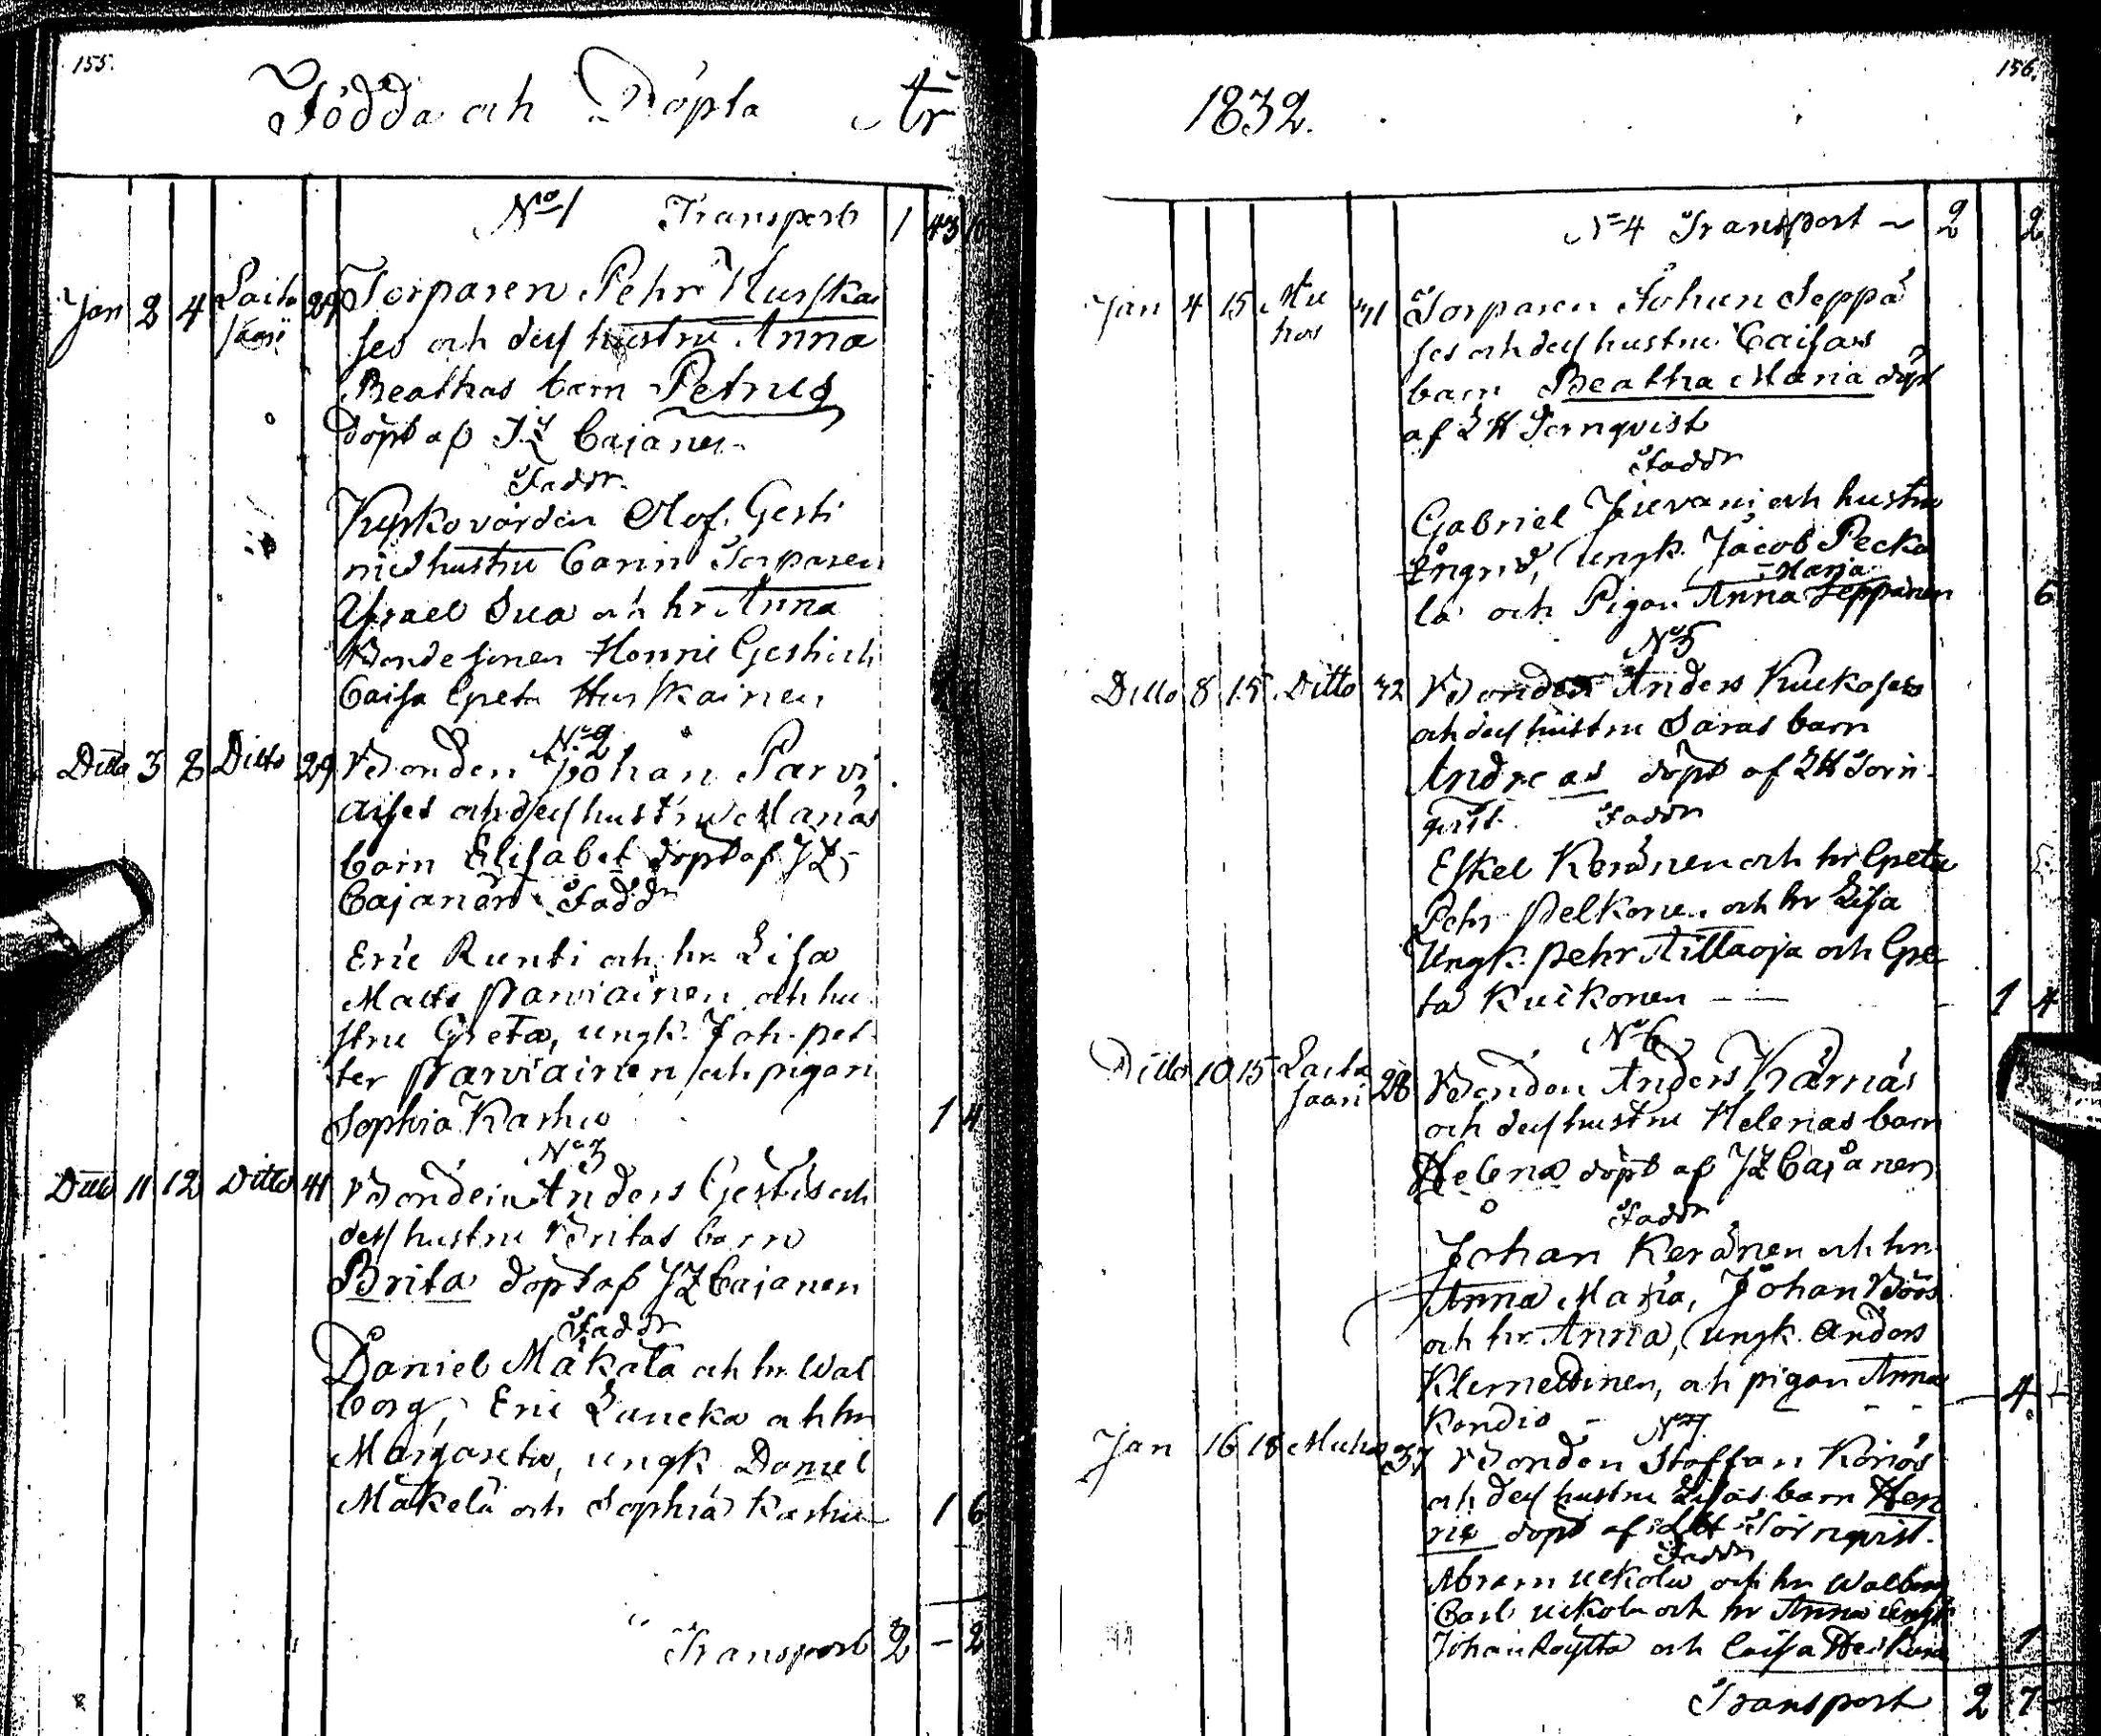 155.
Födda och Döpta År
No 1 Transport 1 43
Jan 2 4 Laita 29 Torparen Pehr Hurskai
saari ses och dess hustru Anna
Beathas barn Petrus
döpt af JZ Cajanen
Faddr
Kyrkovärden Olof Gesti
med hustru Carin Torparen
Israel Sua och hr Anna
Bondesonen Henric Gesti och
Caisa Greta Hurskainen
No 2
Ditto 3 8 Ditto 29 Bonden Johan Parvi
aises och dess hustru Marias
barn Elisabet döpt af JZ
Cajanen Faddr
Eric Runti och hr Lisa
Matts Parviainen och hu
stru Greta, ungk. Joh. Pet
ter Parviainen och pigan
Sophia Karhu 1 4
No 3
Ditto 11 12 Ditto 41 Bonden Anders Gestis och
dess hustru Britas barn
Brita döpt af JZ Cajanen
Faddr
Daniel Mäkelä och hr Wal
borg, Eric Luucka och hr
Margareta, ungk Daniel
Mäkelä och Sophia Karhu 1 6
Transport 2 - 2
156.
1832.
No 4 Transport - 2 2
Jan 4 15 Mu 31 Torparen Johan Seppä
hos ses och dess hustru Caisas
barn Beatha Maria döpt
af LH Törnqvist
Faddr
Gabriel Jurvani och hustru
Ingrid, ungk. Jacob Pecka
Maria
la och Pigan Anna Seppänen 6
No 5
Ditto 8 15 Ditto 32 Bonden Anders Kuikoses
och dess hustru Saras barn
Andreas döpt af LH Törn
qvist. Faddr
Eskel Keränen och hr Greta
Pehr Pelkonen och hr Lisa
Ungk. Pehr Tillaoja och Gre
ta Kuikonen - - 1 4
No 6
Ditto 10 15 Laita 28 Bonden Anders Kärnäs
saari och dess hustru Helenas barn
Helena döpt af JZ Cajanen
Faddr
Johan Keränen och hr
Anna Maria, Johan Böös
och hr Anna, ungk. Anders
Klemettinen, och pigan Anna - 4 -
Kondio - No 7.
Jan 16 18 Muhos 37 Bonden Staffan Körös
och dess hustru Lisas barn Hen
ric döpt af LH Törnqvist.
Faddr
Abram Uckola och hr Walborg
Carl Uckola och hr Anna ungk
Johan Röyttä och Caisa Heikura 1
Transport 2 7